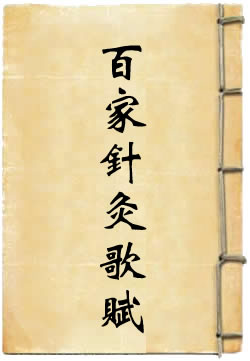 百家針灸歌賦